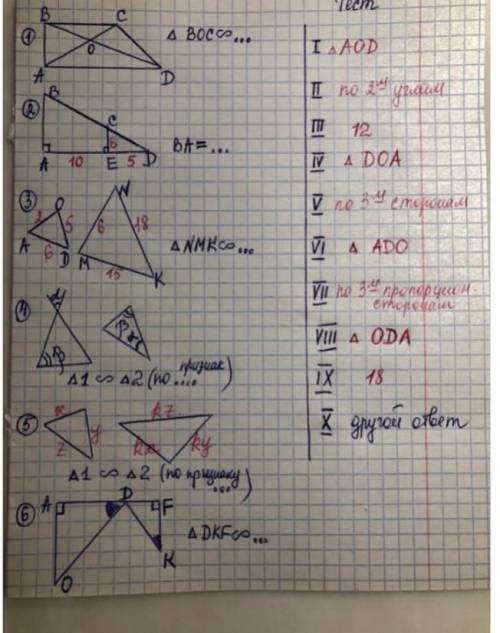 Тест
B C
① O
A D
Δ BOC∾...
② B
C
6
A 10 E 5 D
BA=...
③ O N
2 5 6 18
A 6 D M 15 K
Δ NMK∾...
④ α
β β α
Δ1 ∾ Δ2 (по признак)
....
⑤ x y z
kz kx ky
Δ1 ∾ Δ2 (по признаку)
...
⑥ A D F
K
O
Δ DKF∾...
I Δ AOD
II по 2ᵘᵐ углам
III 12
IV Δ DOA
V по 3ᵘᵐ сторонам
VI Δ ADO
VII по 3ᵘᵐ пропорцион.
сторонам
VIII Δ ODA
IX 18
X другой ответ